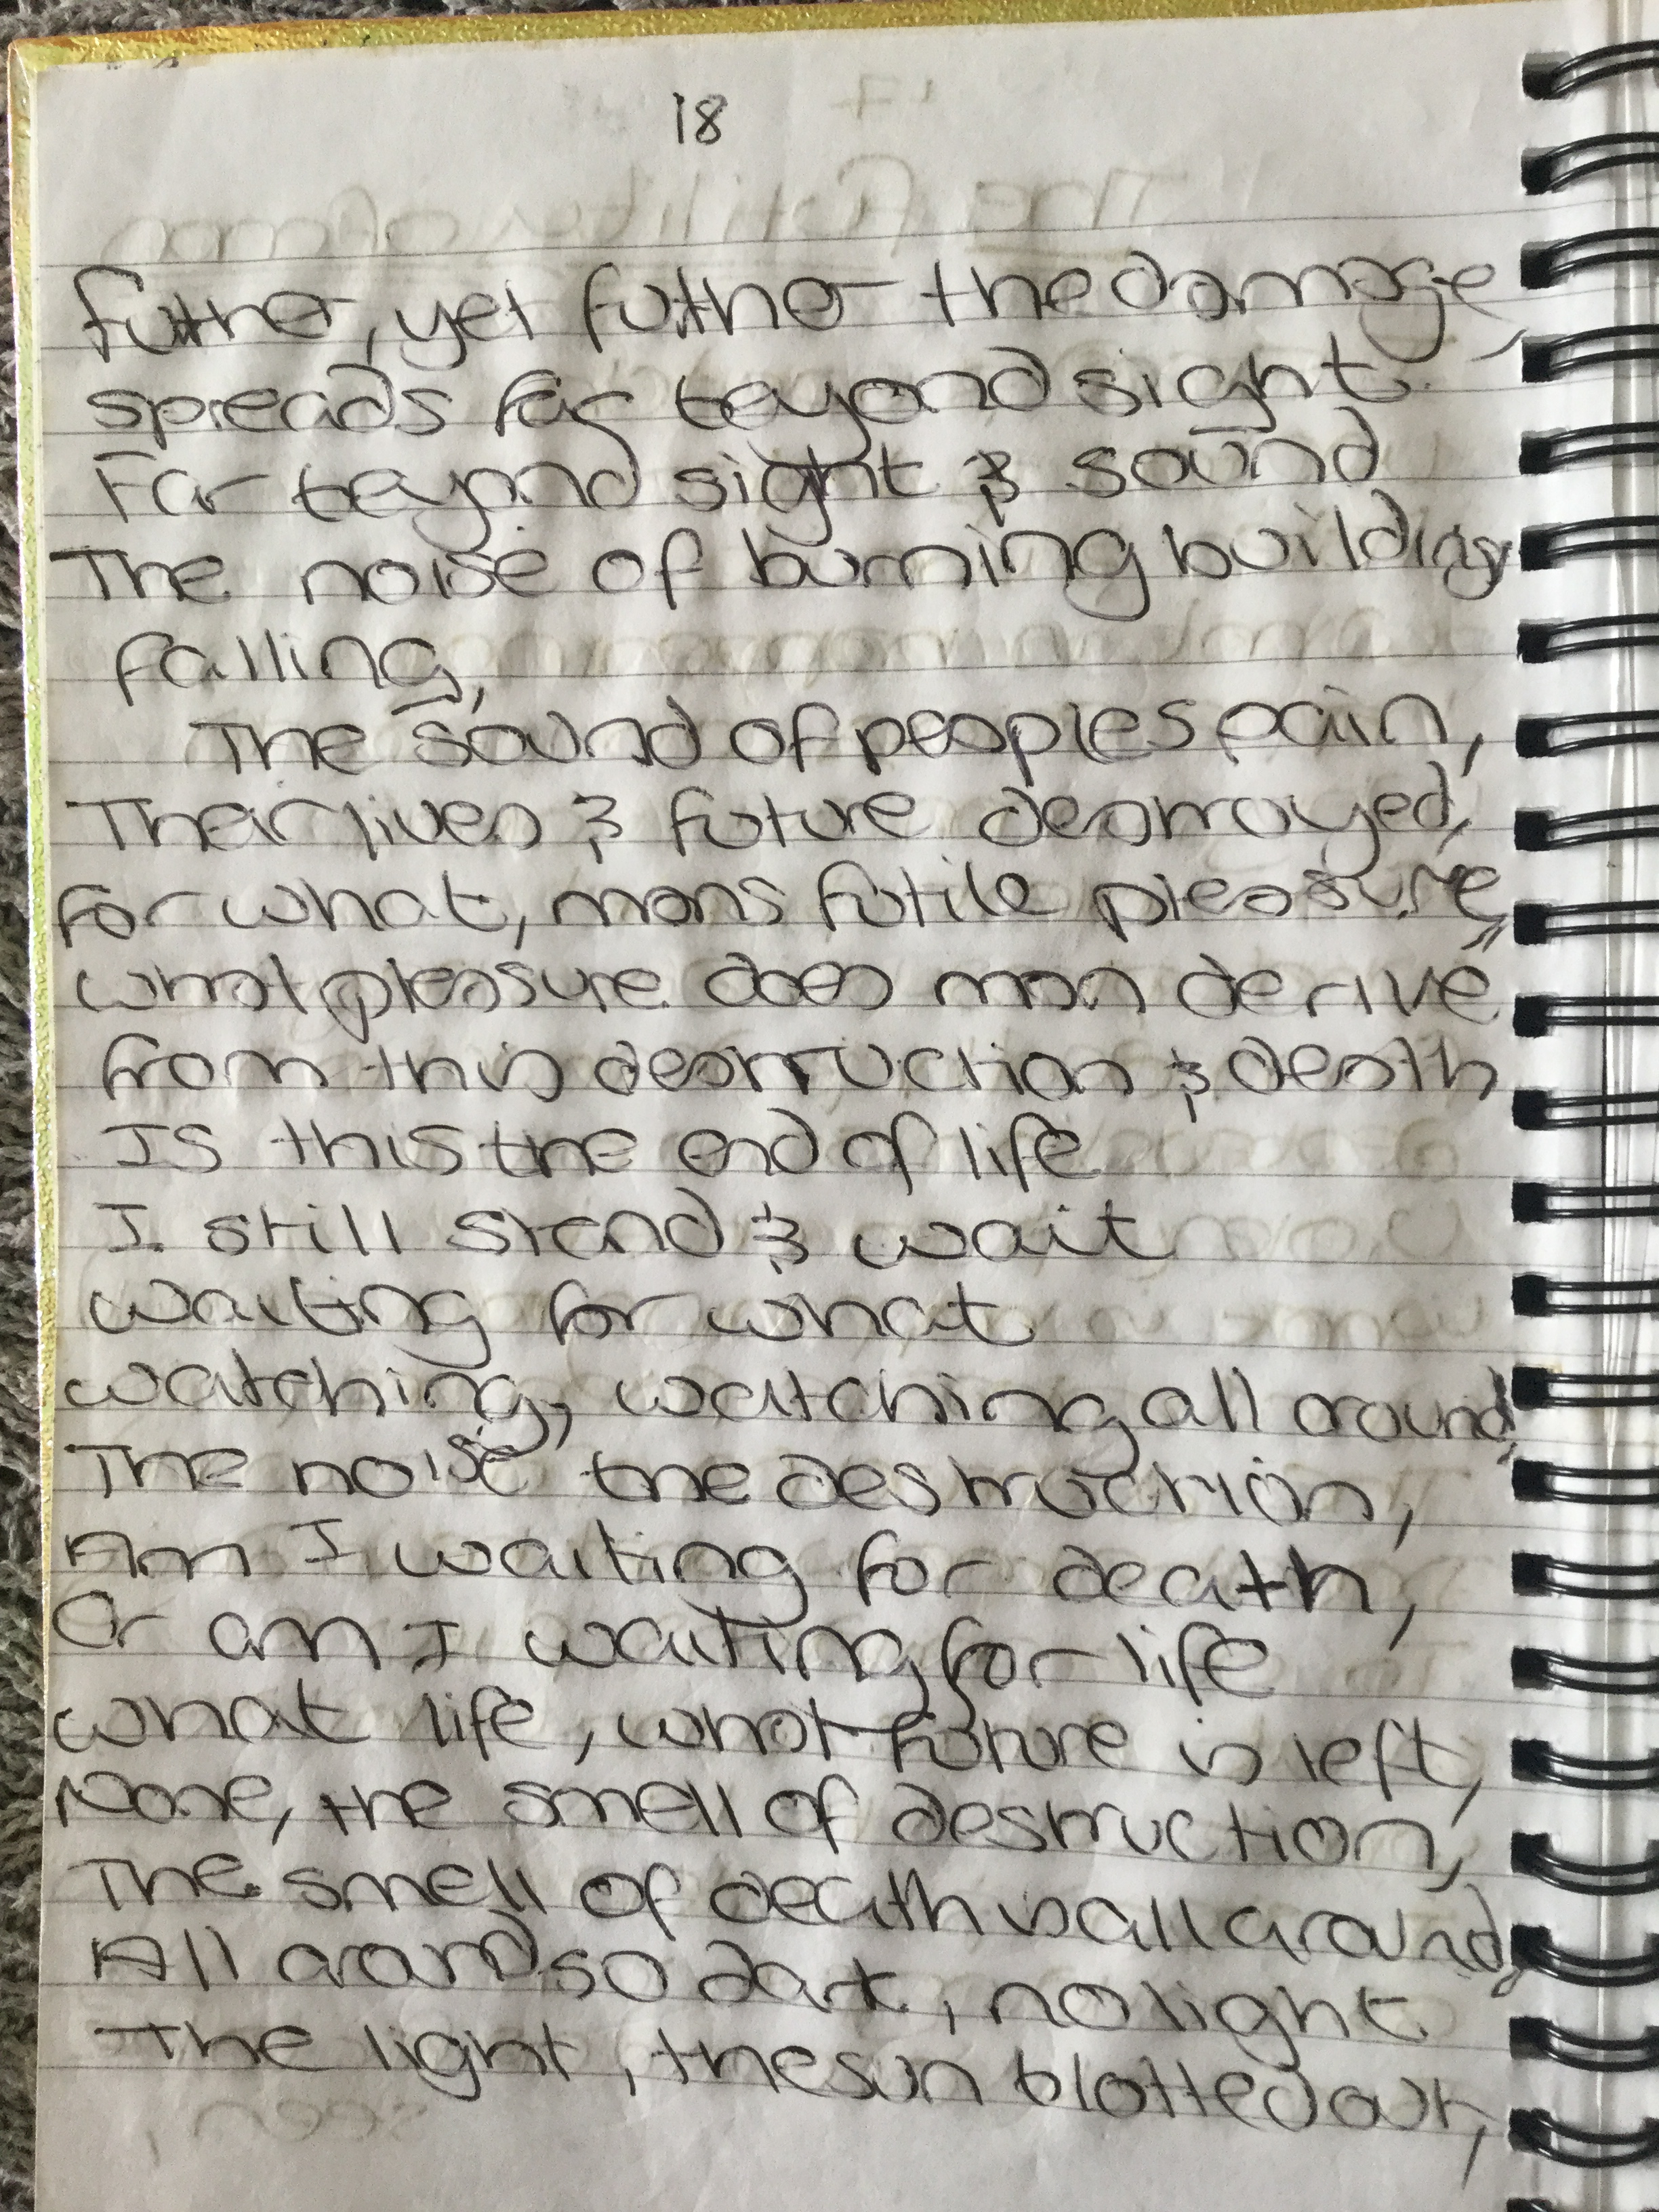 18
futher, yet futher the damage,
spreads far beyond sight.
Far beyond sight & sound
The noise of burning buildings
falling,
The sound of peoples pain,
Their lives & future destroyed,
for what, mans futile pleasure,
what pleasure does man derive
from this destruction & death
Is this the end of life
I still stand & wait
waiting for what
watching, watching all around,
The noise the destruction,
Am I waiting for death,
Or am I waiting for life
what life, what future is left,
None, the smell of destruction,
The smell of death is all around,
All around so dark, no light
The light, the sun blotted out,